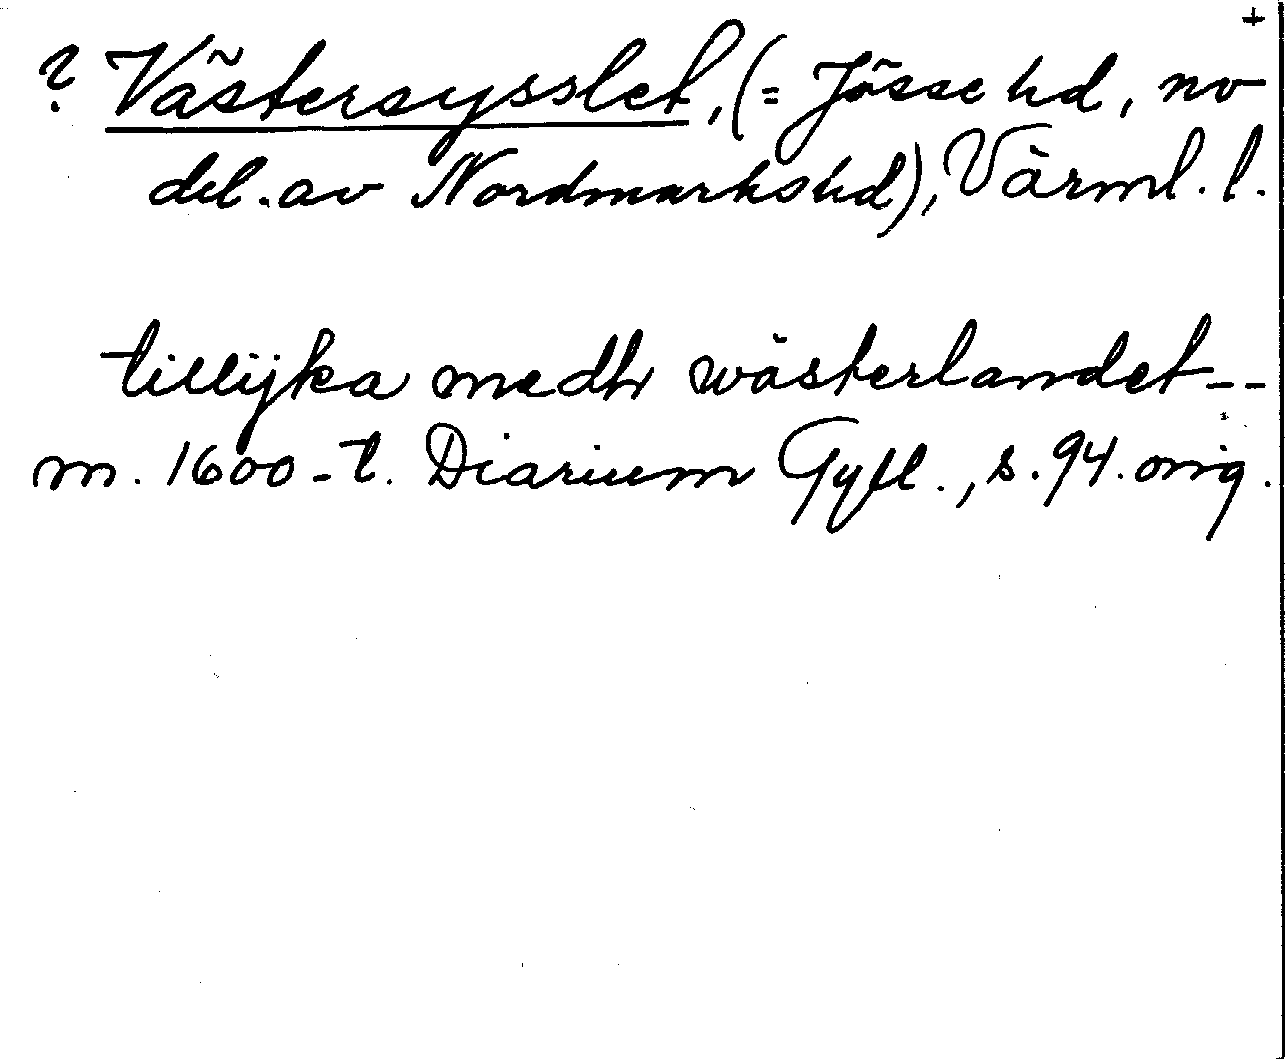 +
? Västersysslet, (= Jösse hd, nv
del. av Nordmarks hd), Värml. l.
tillijka medh wästerlandet --
m. 1600-t. Diarium Gyll., s. 94. orig.